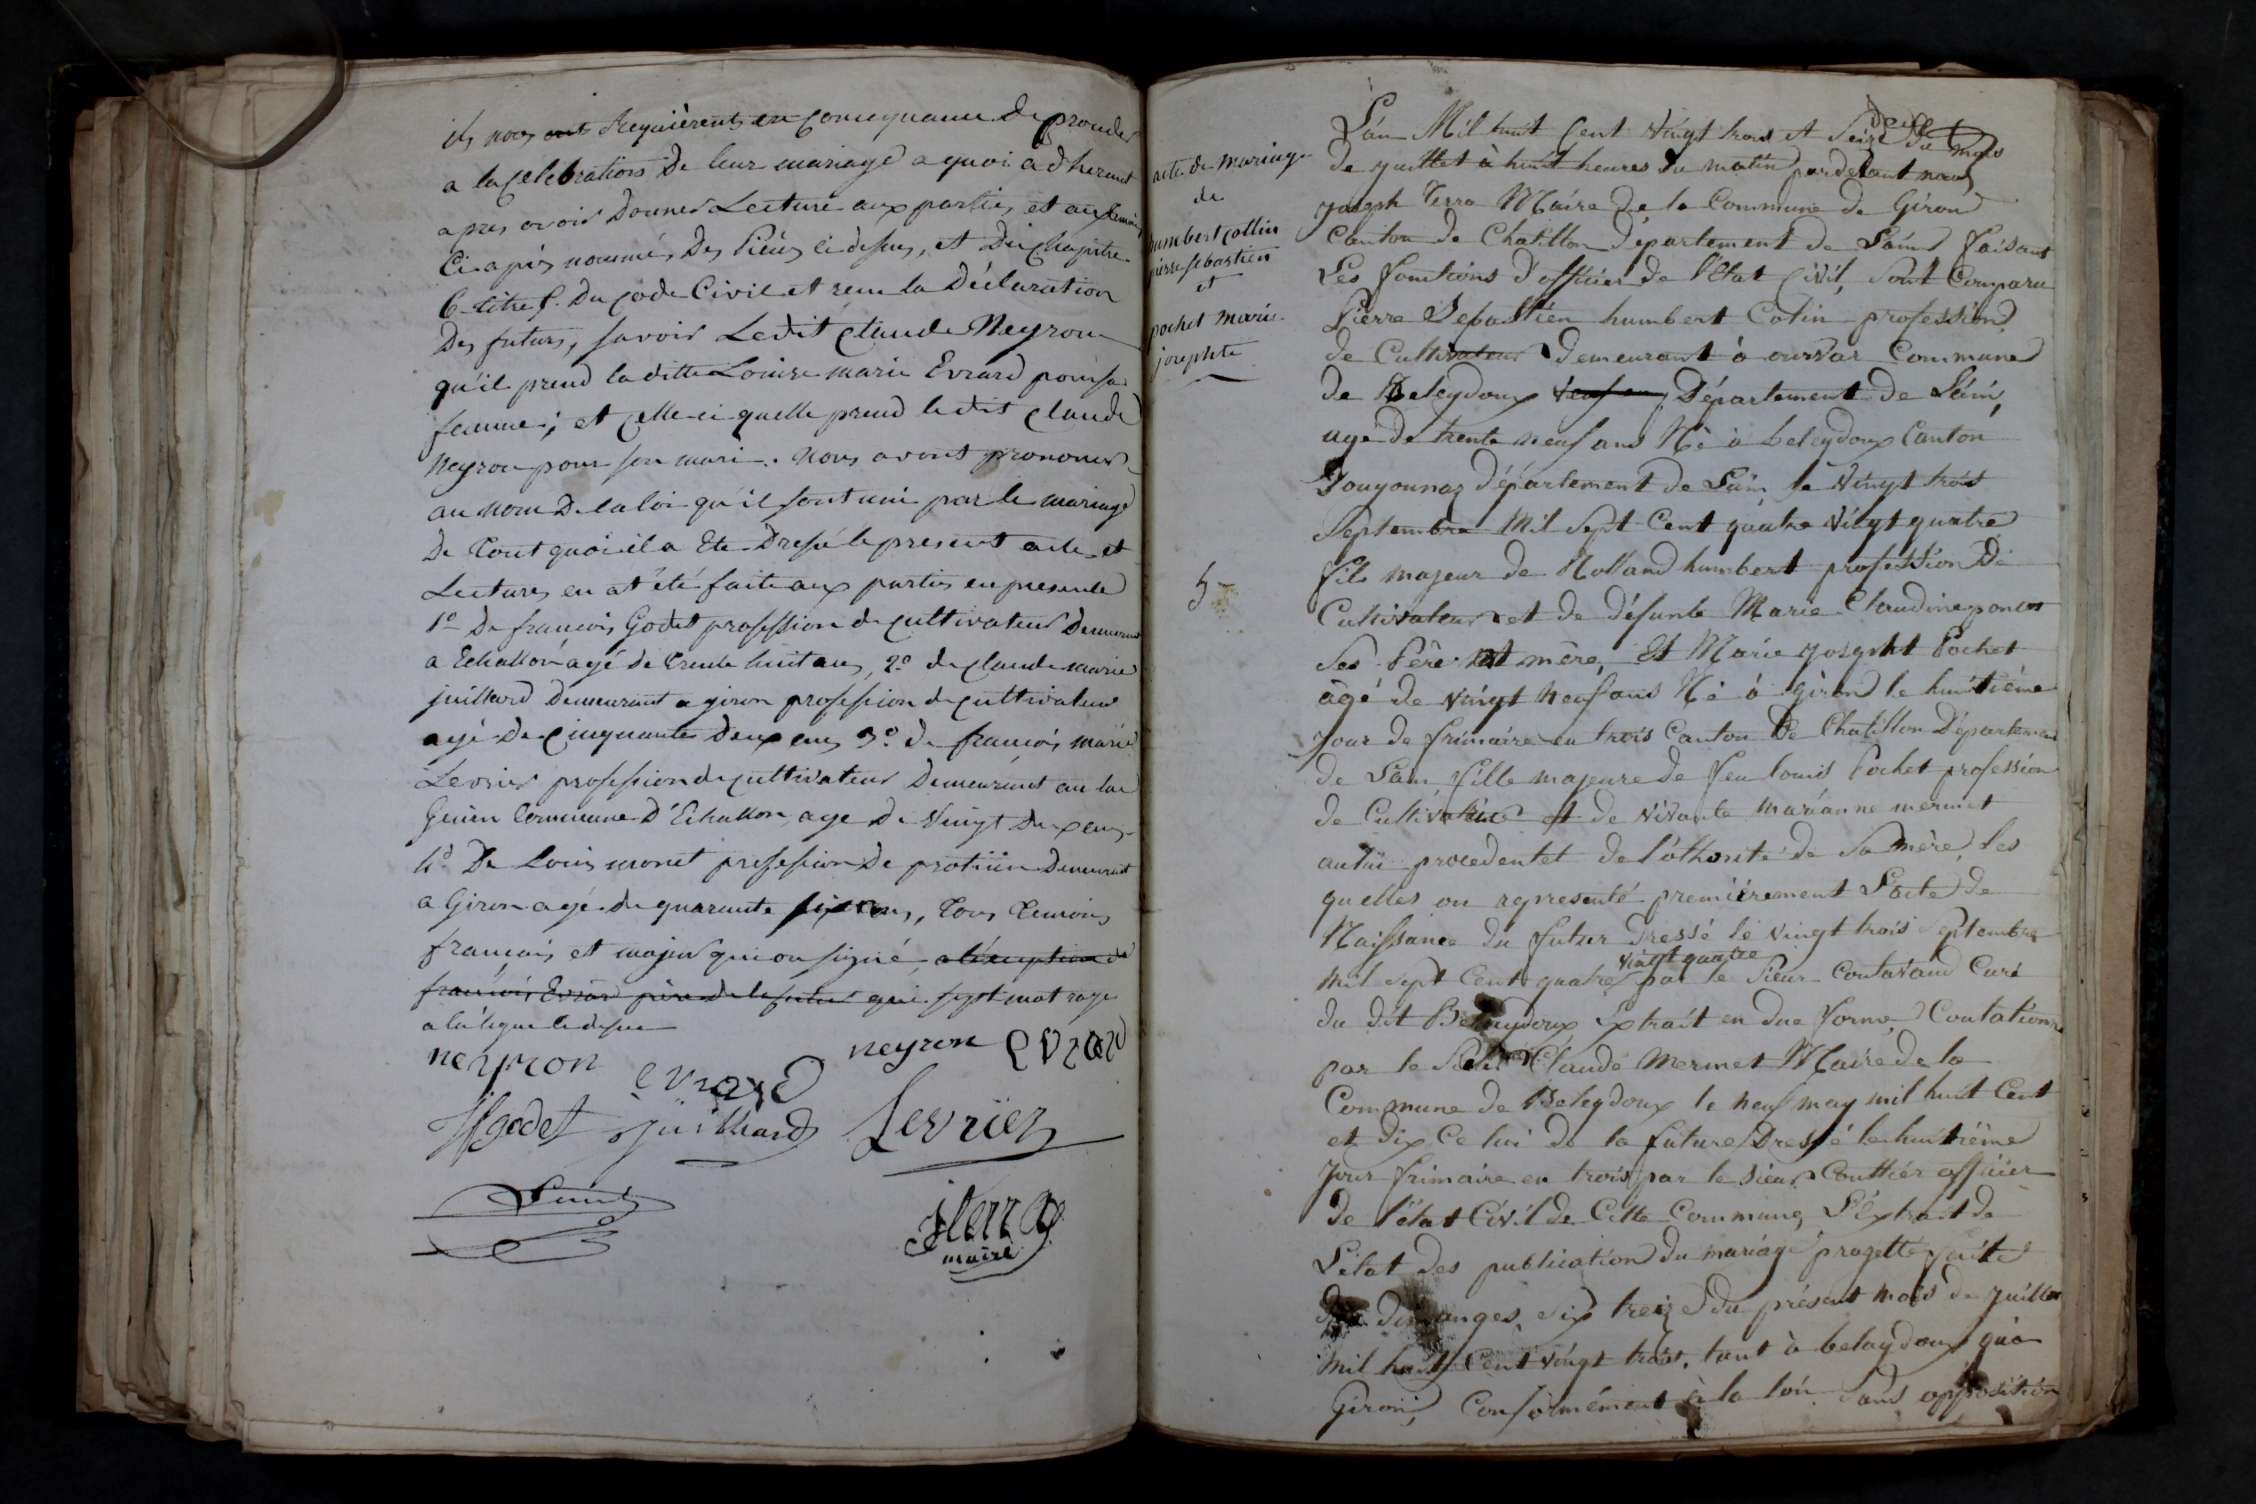 ils nous ont Requièrent en consequance de proceder
a la Celebration De leur mariage a quoi adherent
apres avoir Donner Lecture aux parties et aux temoins
Ci après nommés, Des Pièces ci dessus, et Du Chapitre
6 titre 5. Du Code Civil et reçu la Déclaration
Des futurs, savoir Ledit Claude Neyron
qu'il prend la ditte Louise marie Evrard pour sa
femme; et Celle ci quelle prend le dit Claude
Neyron pour son mari. nous avont prononcer
au nom De la loi qu'il sont uni par le mariage
De tout quoi il a Eté Dressé le present acte et
Lectures en at été faite aux parties en presente
1º De francois Godet profession de cultivateur Demeurant
a Echallon agé de trente huit ans, 2º de Claude marie
juilliard Demeurant a giron profession de cultivateur
agé De Cinquante deux ans 3º de francois marie
Levrier profession de cultivateur Demeurant au lac
Genin Commune D'Echallon age De Vingt Deux ans
4º De Louis monet profession De Demeurant
a Giron agé de quarante six ans, Tous Temoins
francais et majeur qui on signé a l'exception de
francois Evrard père De la future qui sept mot rayé
a la ligne ci dessus
neyron neyron evrard
evrard
Jf godet Juilliard Levrier
j terra
maire
acte de mariage
de
humbert collin
pierre sebastien
et
pochet marie
josephte
5
L'an Mil huit Cent vingt trois et Seize du mois
de juillet à huit heures du matin pardevant nous
joseph Terra Maire De la Commune de Giron
Canton de Chatillon Département de Lain faisant
Les fonctions d'officier de l'Etat Civil, sont Comparu
Pierre Sebastien humbert Colin profession
de Cultivateur demeurant à Commune
de Beleydoux Département de Lain,
agé De trente neuf ans Né à beleydoux Canton
Doyounnaz Département de Lain le Vingt trois
Septembre Mil Sept Cent quatre Vingt quatre
fils majeur de Rolland humbert profession De
Cultivateur et de défunte Marie Claudine poncet
Ses Père et mère, Et Marie josepht Pochet
âgé de vingt neuf ans Né à Giron le huitième
jour de frimaire en trois Canton de Chatillon Département
de Lain fille majeure de feu louis Pochet profession
de Cultivatrice et de vivante marianne mermet
procedentet de l'othorité de Sa mère, les
quelles on representé premièrement L'acte de
Naissance du futur Dressé le vingt trois Septembre
vingt quatre
mil sept Cent quatre par le Sieur Coutavaud Curé
du dit Beleydoux, Extrait en due forme
par le Sieur Claude Mermet Maire de la
Commune de Beleydoux le neuf may mil huit Cent
et dix Celui de la future Dressé le huitième
jour frimaire en trois par le sieur Couttier officier
de l'état Civil de Cette Commune, L'Extrait de
L'etat des publication du mariage projetté faite
des dimanges, six treize du présent mois de juillet
mil huit Cent vingt trois, tant à beleydoux qu'a
Giron, Conformément à la loi Sans opposition